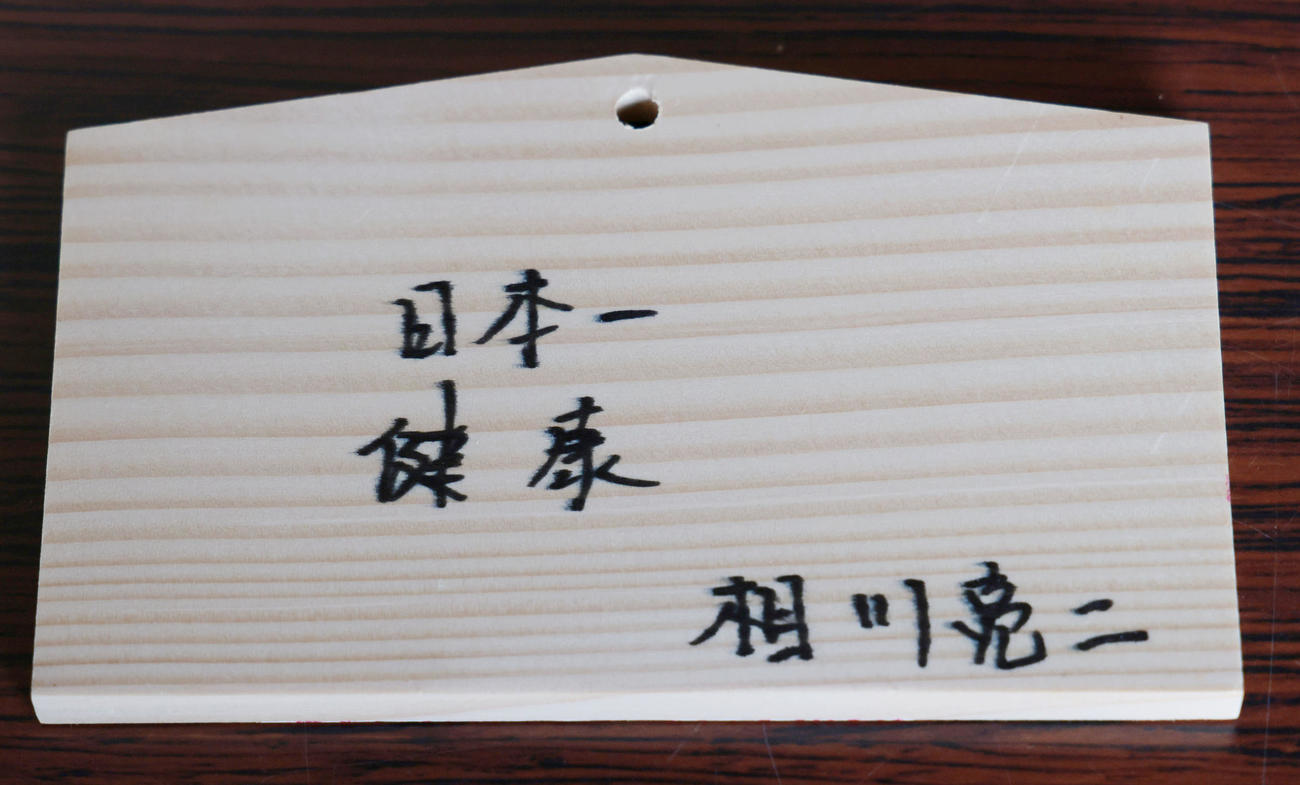 日本一
健康
相川亮二